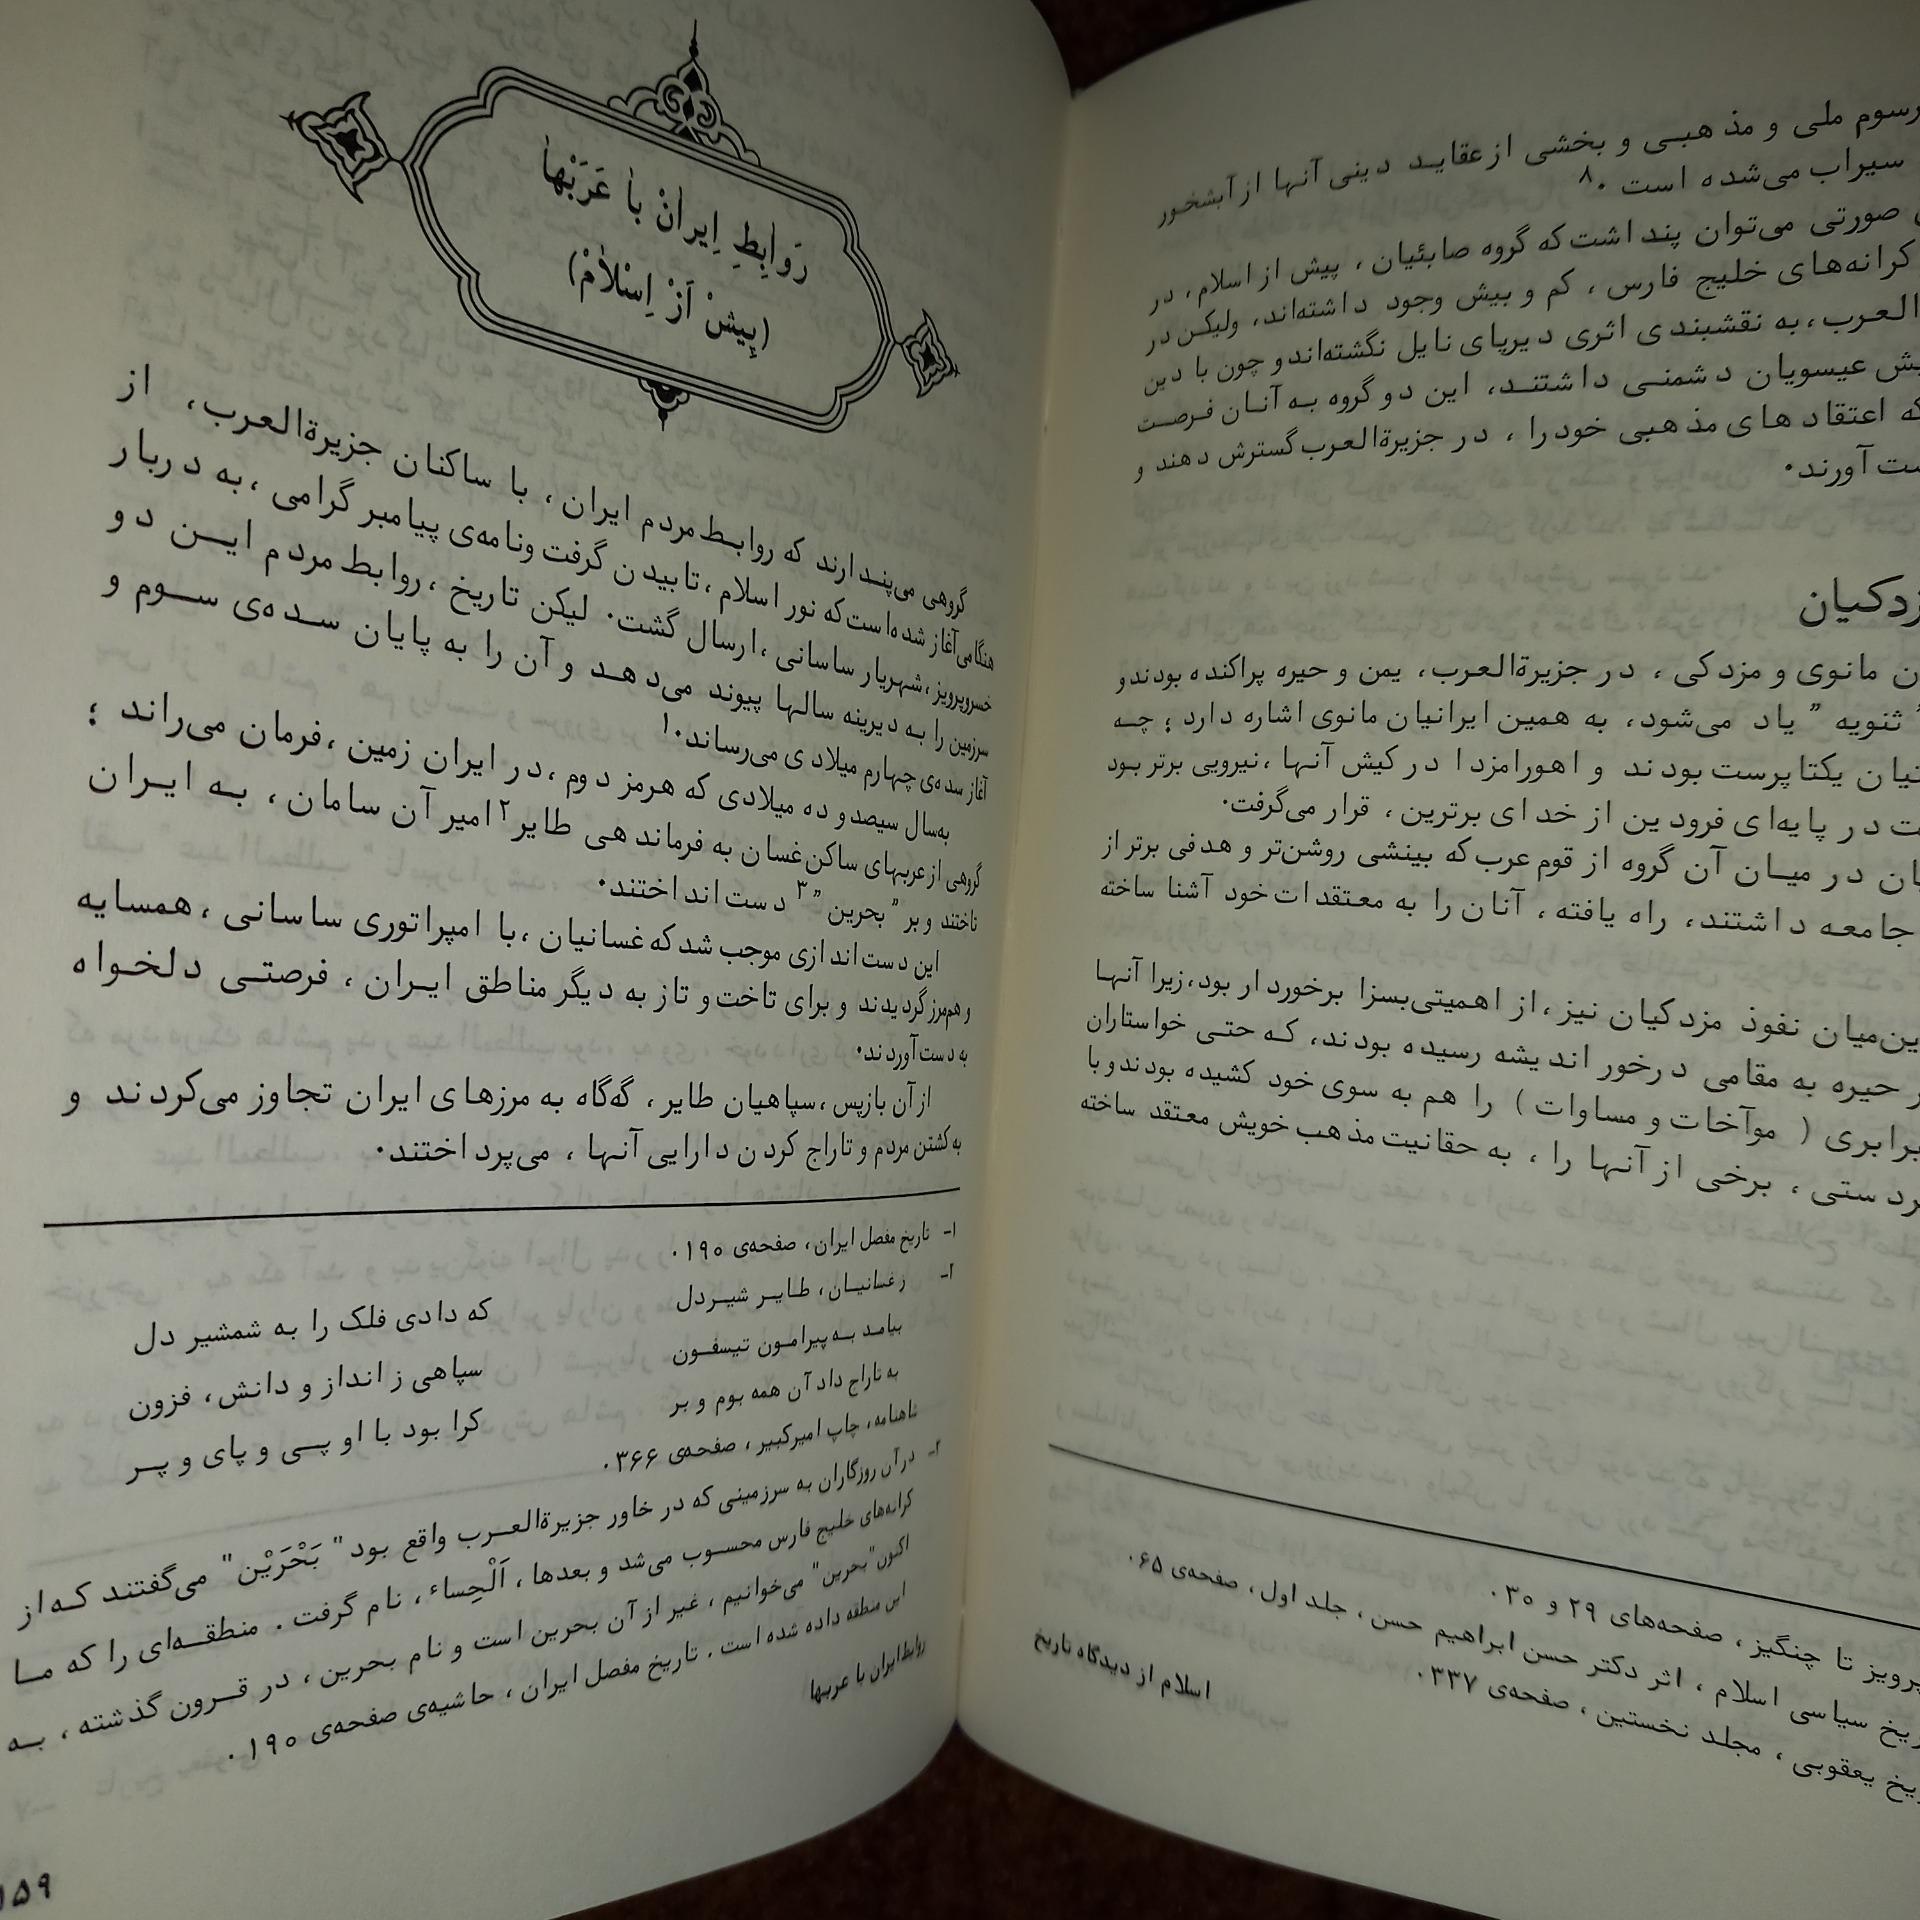 رسوم ملی و مذهبی و بخشی از عقاید دینی آنها از آبشخور
سیراب می‌شده است ۰۸
صورتی می‌توان پنداشت که گروه صابئیان ، پیش از اسلام ، در
کرانه‌های خلیج فارس ، کم و بیش وجود داشته‌اند، ولیکن در
العرب ،به نقشبندی اثری دیرپای نایل نگشته‌اند و چون با دین
عیسویان دشمنی داشتند، این دو گروه به آنان فرصت
که اعتقادهای مذهبی خود را ، در جزیرةالعرب گسترش دهند و
آورند۰
مانوی و مزدکی ، در جزیرةالعرب، یمن و حیره پراکنده بودند و
" ثنویه " یاد می‌شود، به همین ایرانیان مانوی اشاره دارد ؛ چه
یکتاپرست بودند و اهورامزدا در کیش آنها ،نیرویی برتر بود
در پایه‌ای فرودین از خدای برترین ، قرار می‌گرفت۰
در میان آن گروه از قوم عرب که بینشی روشن‌تر و هدفی برتر از
جامعه داشتند، راه یافته ، آنان را به معتقدات خود آشنا ساخته
میان نفوذ مزدکیان نیز ،از اهمیتی بسزا برخوردار بود،زیرا آنها
حیره به مقامی درخور اندیشه رسیده بودند، که حتی خواستاران
برابری ( موآخات و مساوات ) را هم به سوی خود کشیده بودند و با
برخی از آنها را ، به حقانیت مذهب خویش معتقد ساخته
تا چنگیز ، صفحه‌های ۲۹ و ۳۰۰
سیاسی اسلام ، اثر دکتر حسن ابراهیم حسن ، جلد اول ، صفحه‌ی ۶۵۰
یعقوبی ، مجلد نخستین ، صفحه‌ی ۳۳۷۰
اسلام از دیدگاه تاریخ
رَوابِطِ اِیرانْ با عَرَبْها
(پِیشْ اَزْ اِسْلامْ)
گروهی می‌پندارند که روابط مردم ایران ، با ساکنان جزیرةالعرب، از
هنگامی آغاز شده‌است که نور اسلام ،تابیدن گرفت ونامه‌ی پیامبر گرامی ،به دربار
خسروپرویز ،شهریار ساسانی ،ارسال گشت۰ لیکن تاریخ ،روابط مردم این دو
سرزمین را به دیرینه سالها پیوند می‌دهد و آن را به پایان سده‌ی سوم و
آغاز سده‌ی چهارم میلادی می‌رساند۰۱
به‌سال سیصدو ده میلادی که هرمز دوم ،در ایران زمین ،فرمان می‌راند ؛
گروهی از عربهای ساکن غسان به فرماندهی طایر۲ امیر آن سامان ، به ایران
تاختند و بر " بحرین "۳ دست انداختند۰
این دست‌اندازی موجب شد که غسانیان ،با امپراتوری ساسانی ، همسایه
و هم‌مرز گردیدند و برای تاخت و تاز به دیگر مناطق ایران ، فرصتی دلخواه
به دست آوردند۰
از آن بازپس ،سپاهیان طایر ، گه‌گاه به مرزهای ایران تجاوز می‌کردند و
به کشتن مردم و تاراج کردن دارایی آنها ، می‌پرداختند۰
۱- تاریخ مفصل ایران، صفحه‌ی ۱۹۰۰
زغسانیان، طایر شیردل که دادی فلک را به شمشیر دل
بیامد به پیرامون تیسفون سپاهی ز انداز و دانش، فزون
به تاراج داد آن همه بوم و بر کرا بود با او پی و پای و پر
چاپ امیرکبیر ، صفحه‌ی ۳۶۶۰
در آن روزگاران به سرزمینی که در خاور جزیرةالعرب واقع بود " بَحْرَیْن " می‌گفتند که از
کرانه‌های خلیج فارس محسوب می‌شد و بعدها ، اَلْحِساء ، نام گرفت . منطقه‌ای را که ما
اکنون"بحرین" می‌خوانیم ، غیر از آن بحرین است و نام بحرین ، در قرون گذشته ، به
این منطقه داده شده است . تاریخ مفصل ایران ، حاشیه‌ی صفحه‌ی ۱۹۰۰
روابط ایران با عربها
۱۵۹